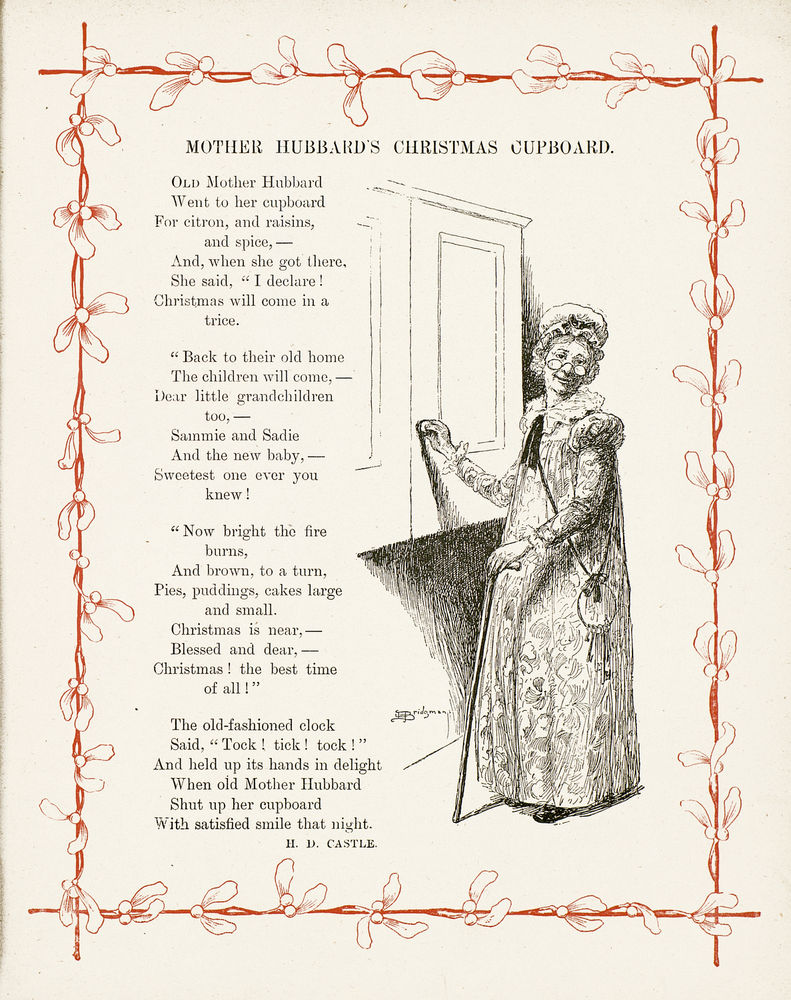 MOTHER HUBBARD'S CHRISTMAS CUPBOARD.
OLD Mother Hubbard
Went to her cupboard
For citron, and raisins,
and spice, —
And, when she got there,
She said, “ I declare !
Christmas will come in a
trice.
“ Back to their old home
The children will come, —
Dear little grandchildren
too, —
Sammie and Sadie
And the new baby, —
Sweetest one ever you
knew !
“ Now bright the fire
burns,
And brown, to a turn,
Pies, puddings, cakes large
and small.
Christmas is near, —
Blessed and dear, —
Christmas ! the best time
of all ! ”
The old-fashioned clock
Said, “ Tock ! tick ! tock ! ”
And held up its hands in delight
When old Mother Hubbard
Shut up her cupboard
With satisfied smile that night.
H. D. CASTLE.
Bridgman